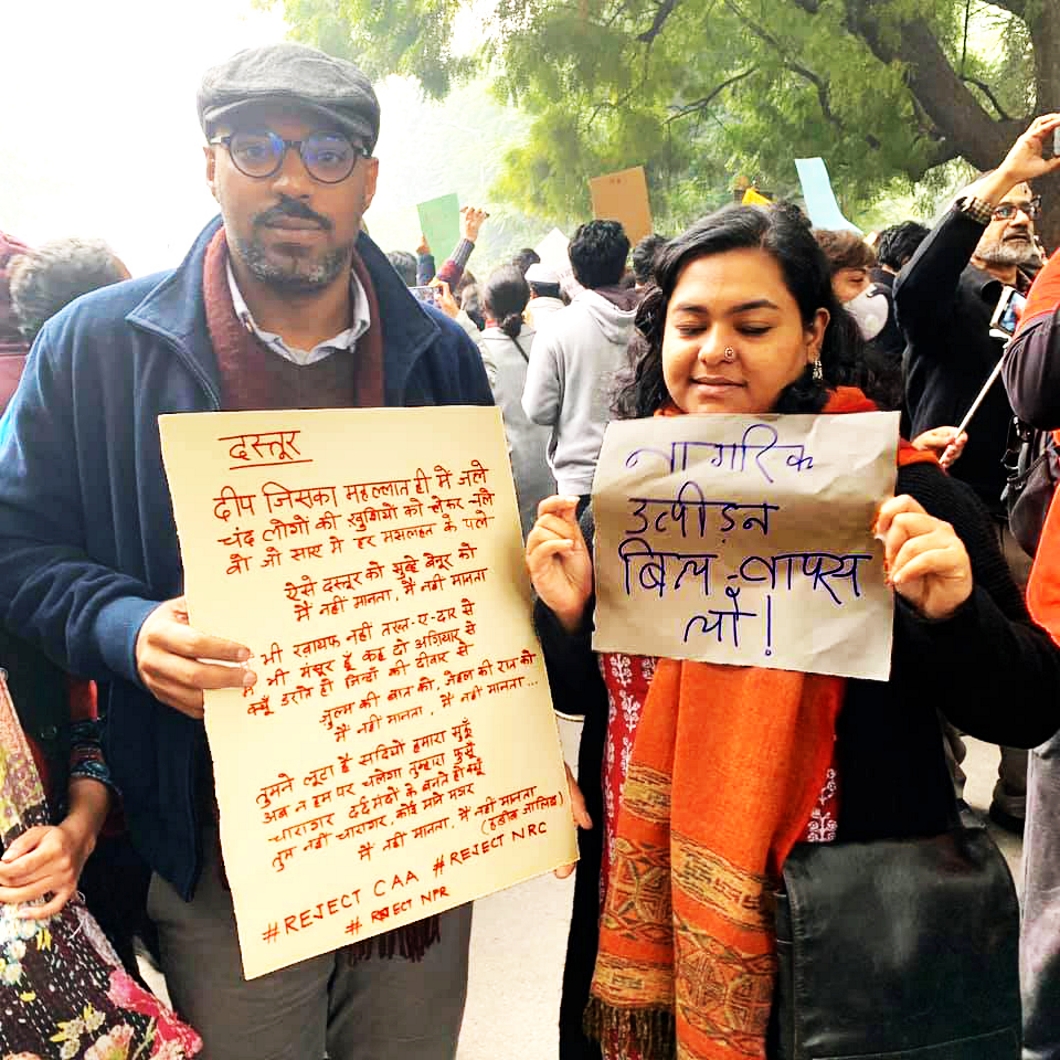 दस्तूर
दीप जिसका महल्लात ही में जले
चंद लोगों की ख़ुशियों को लेकर चले
वो जो साए में हर मसलहत के पले
ऐसे दस्तूर को सुब्हे बेनूर को
मैं नहीं मानता, मैं नहीं मानता
भी ख़ायफ़ नहीं तख़्त-ए-दार से
मैं भी मंसूर हूँ कह दो अग़ियार से
क्यूँ डराते हो ज़िन्दाँ की दीवार से
ज़ुल्म की बात को, जेहल की रात को
मैं नहीं मानता, मैं नहीं मानता...
तुमने लूटा है सदियों हमारा सुकूँ
अब न हम पर चलेगा तुम्हारा फुसूँ
चारागर दर्दमंदों के बनते हो क्यूँ
तुम नहीं चारागर, कोई माने मगर
मैं नहीं मानता, मैं नहीं मानता
(हबीब जालिब)
#REJECT CAA #REJECT NRC
# REJECT NPR
नागरिक
उत्पीड़न
बिल वापस
लो!